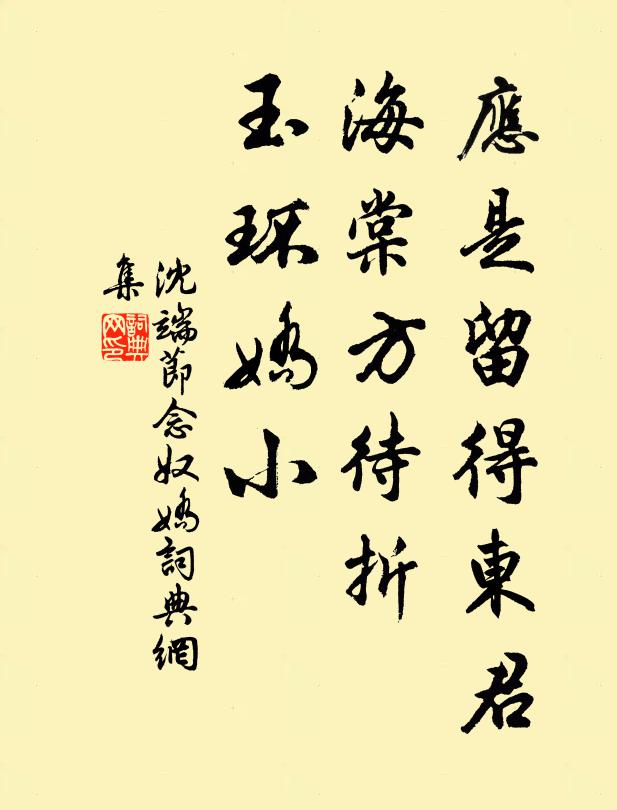 應是留得東君
海棠方待折
玉环嬌小
沈端節念奴嬌詞典網
集
詞典
网印